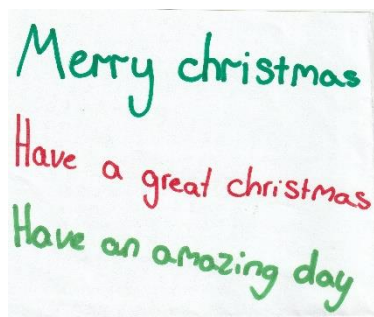 Merry christmas
Have a great christmas
Have an amazing day